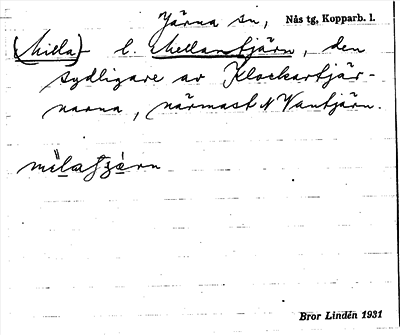 Järna sn, Nås tg, Kopparb. l.
(Milla) l. Mellantjärn, den
sydligare av Klockartjär-
narna, närmast N Vantjärn.
Bror Lindén 1931